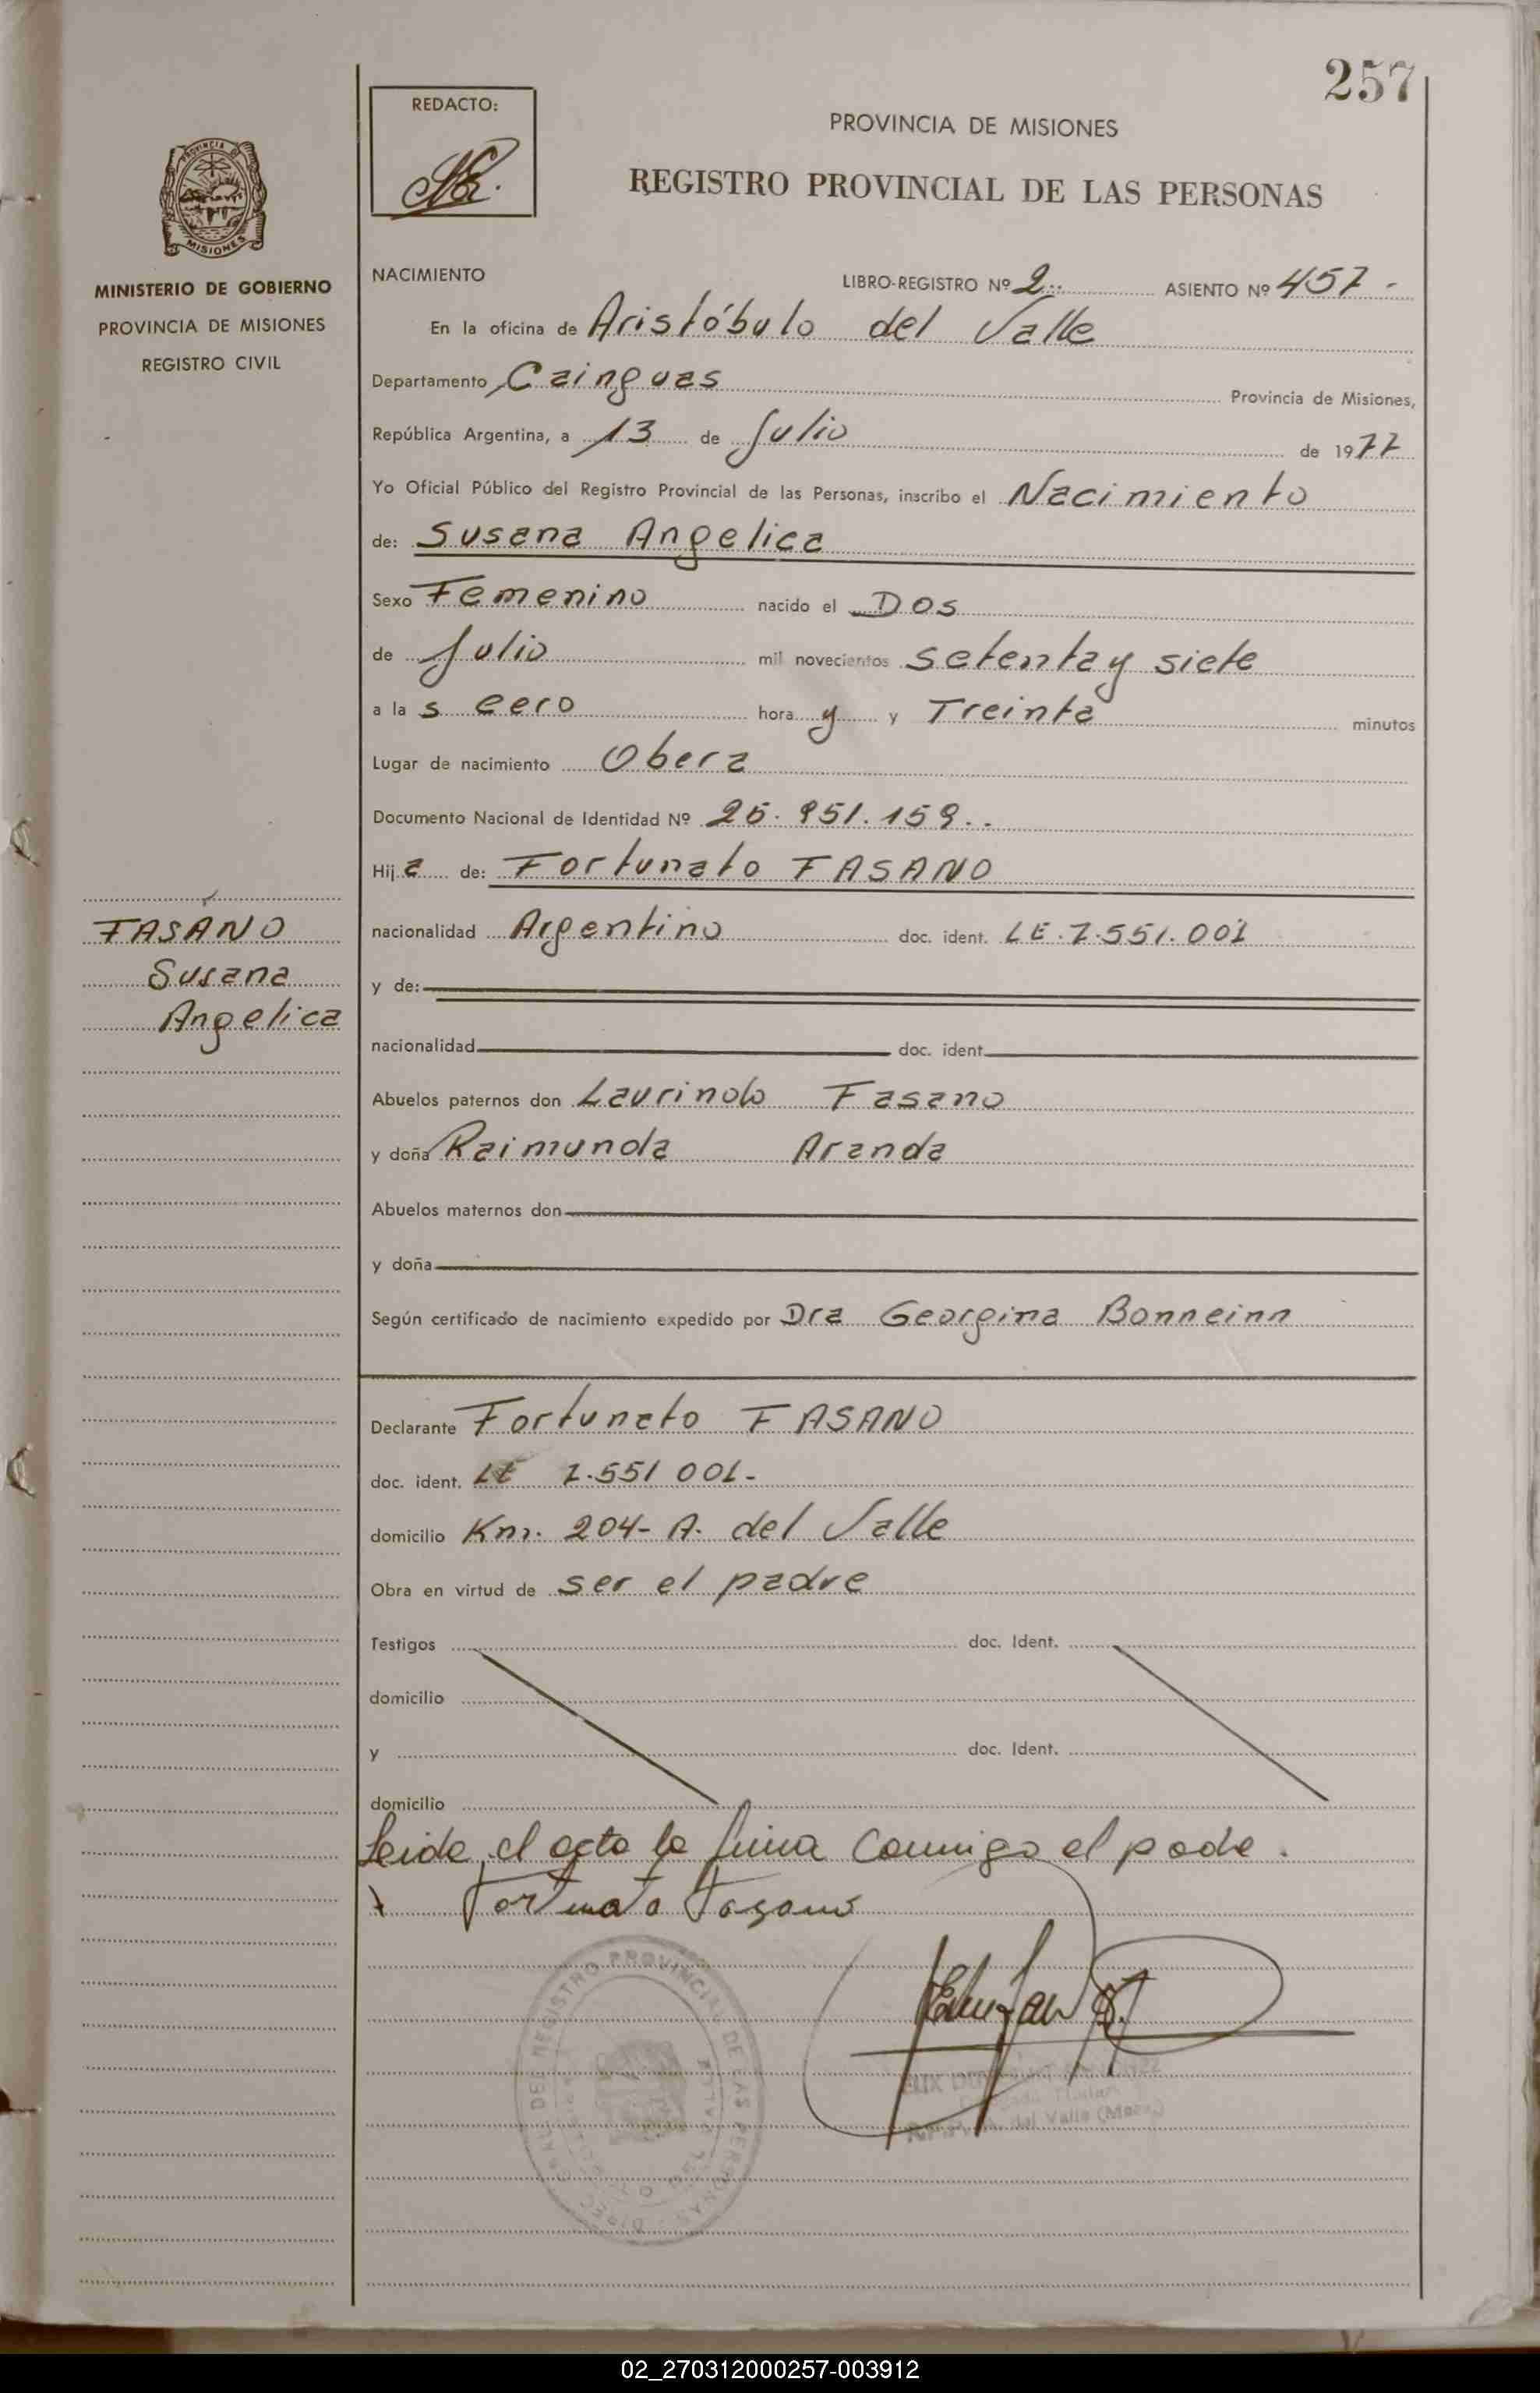 257
REDACTO:
PROVINCIA DE MISIONES
REGISTRO PROVINCIAL DE LAS PERSONAS
PROVINCIA DE
MISIONES
MINISTERIO DE GOBIERNO
PROVINCIA DE MISIONES
REGISTRO CIVIL
NACIMIENTO LIBRO-REGISTRO Nº 2 ASIENTO Nº 457 -
En la oficina de Aristóbulo del Valle
Departamento Cainguas Provincia de Misiones,
República Argentina, a 13 de Julio de 1977
Yo Oficial Público del Registro Provincial de las Personas, inscribo el Nacimiento
de: Susana Angelica
Sexo Femenino nacido el Dos
de Julio mil novecientos setenta y siete
a la s cero hora y y Treinta minutos
Lugar de nacimiento Obera
Documento Nacional de Identidad Nº 25.951.159..
Hij a de: Fortunato FASANO
nacionalidad Argentino doc. ident. LE.7.551.001
y de:
nacionalidad doc. ident.
Abuelos paternos don Laurindo Fasano
y doña Raimunda Aranda
Abuelos maternos don
y doña
Según certificado de nacimiento expedido por Dra Georgina Bonneinn
FASANO
Susana
Angelica
Declarante Fortunato FASANO
doc. ident. LE 7.551 001-
domicilio Km. 204- A. del Valle
Obra en virtud de ser el padre
Testigos doc. Ident.
domicilio
y doc. Ident.
domicilio
Leida el acta la firma conmigo el padre.
Fortunato Fasano
REGISTRO PROVINCIAL DE LAS PERSONAS
del Valle
02_270312000257-003912